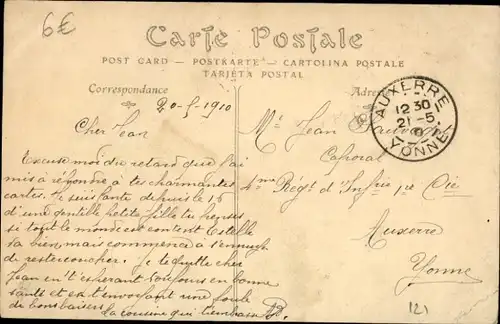 6€
Carte Postale
POST CARD — POSTKARTE — CARTOLINA POSTALE
TARJETA POSTAL
Correspondance
Adresse
20-5-1910
Cher Jean
Excuse moi du retard que j'ai
mis à répondre à tes charmantes
cartes. Je suis tante depuis le 15
d'une gentille petite fille tu penses
si tout le monde est content Estelle
va bien, mais commence à s'ennuyer
de rester coucher. Je te quitte cher
Jean en t'espérant toujours en bonne
santé et en t'envoyant une foule
de bons baisers
la cousine qui t'embrasse B.
AUXERRE
12 30
21 - 5
YONNE
Mr Jean
Caporal
4me Régt d'Infie 1re Cie
Auxerre
Yonne
121